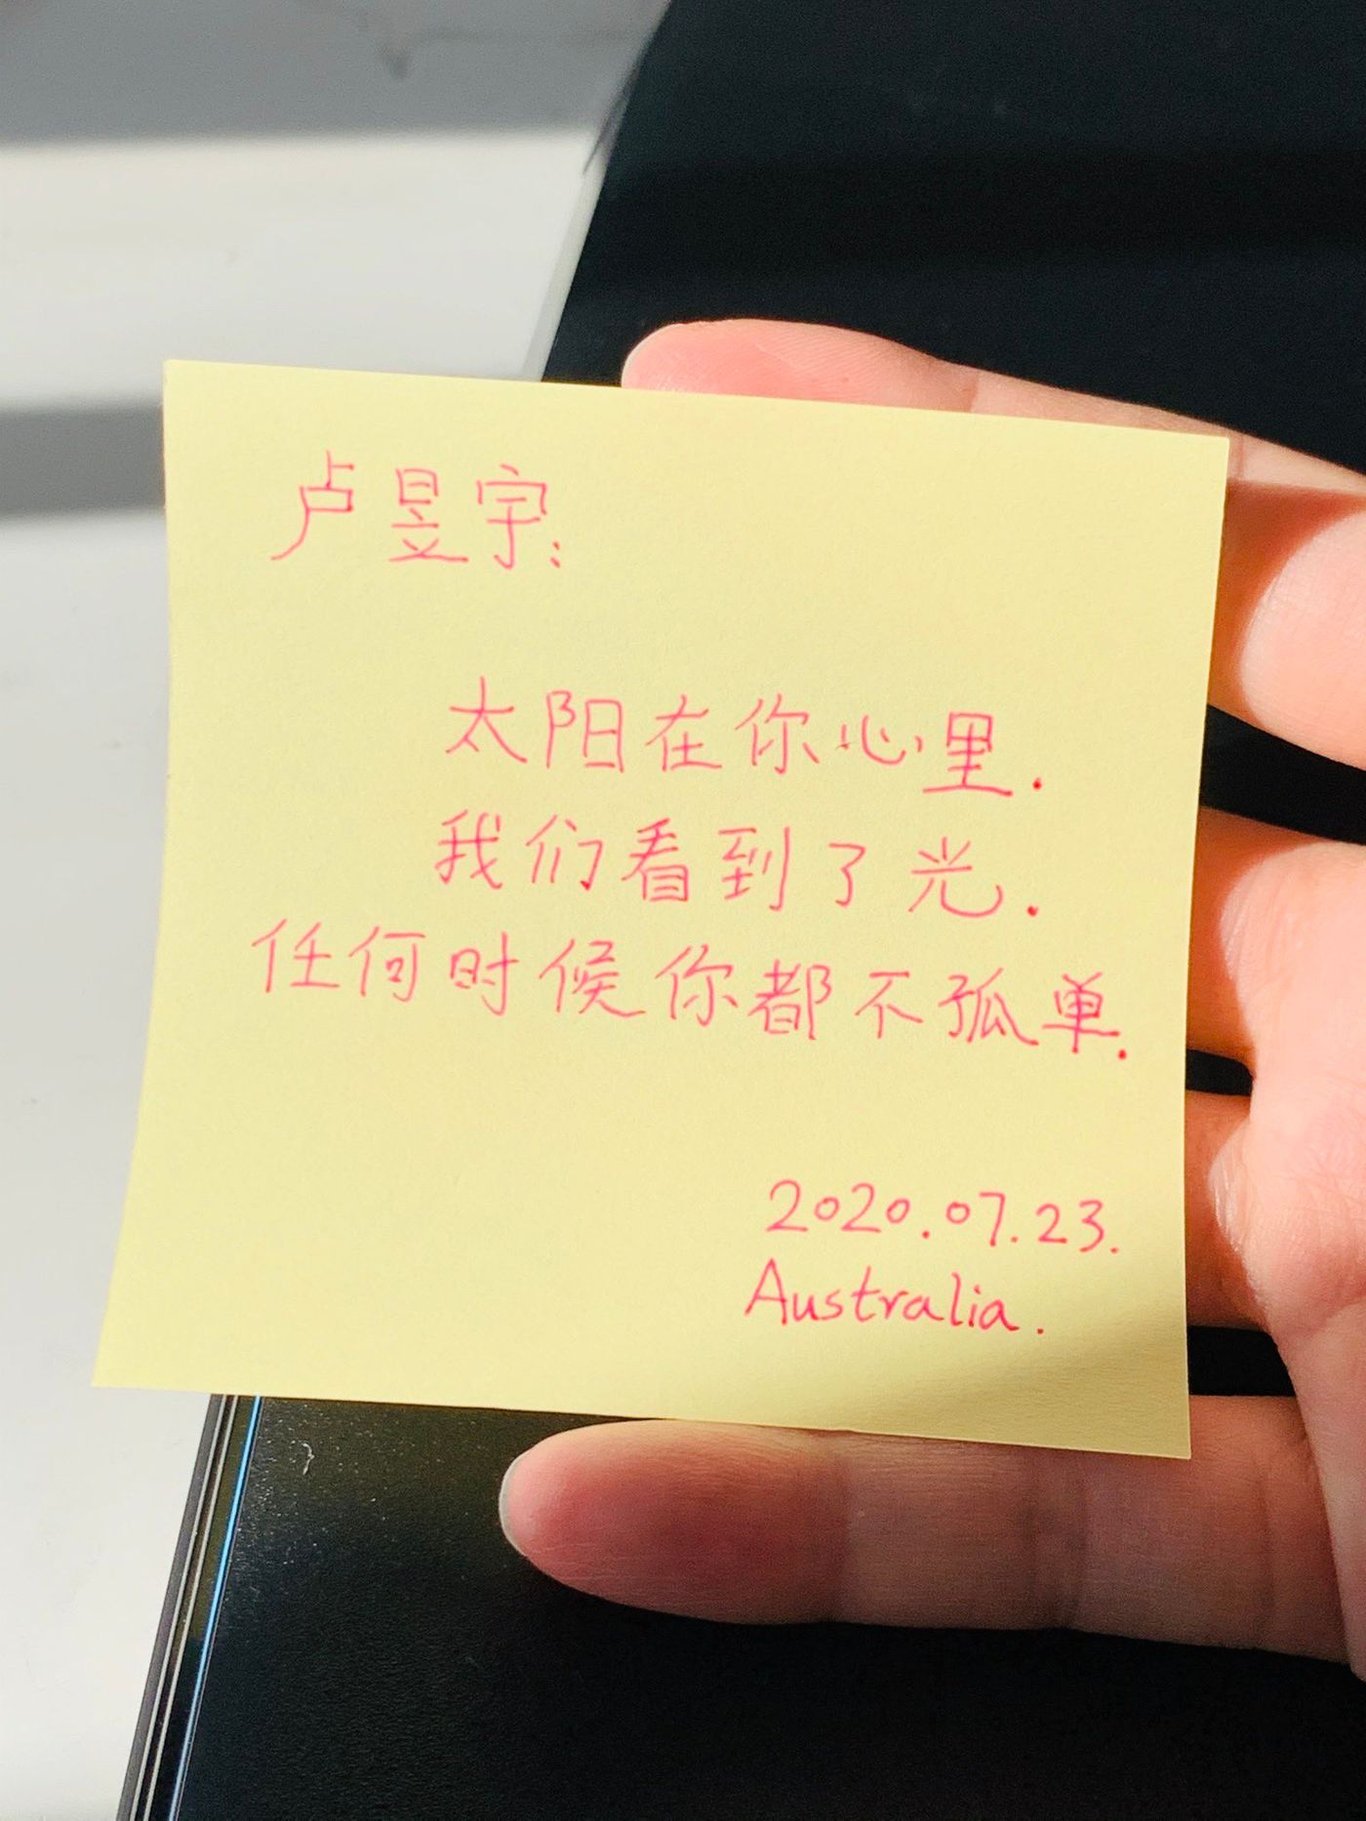 卢昱宇:
太阳在你心里.
我们看到了光.
任何时候你都不孤单.
2020.07.23.
Australia.